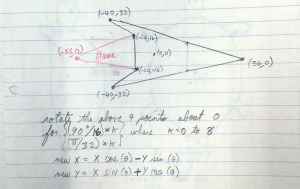 (-40,32)
(-24,16)
(-56,0)
flame
(0,0)
(56,0)
(-24,-16)
(-40,-32)
rotate the above 9 points about 0
for (90°/16)*K where K=0 to 8
(π/32)*K
new X = X cos(θ) - Y sin(θ)
new Y = X sin(θ) + Y cos(θ)